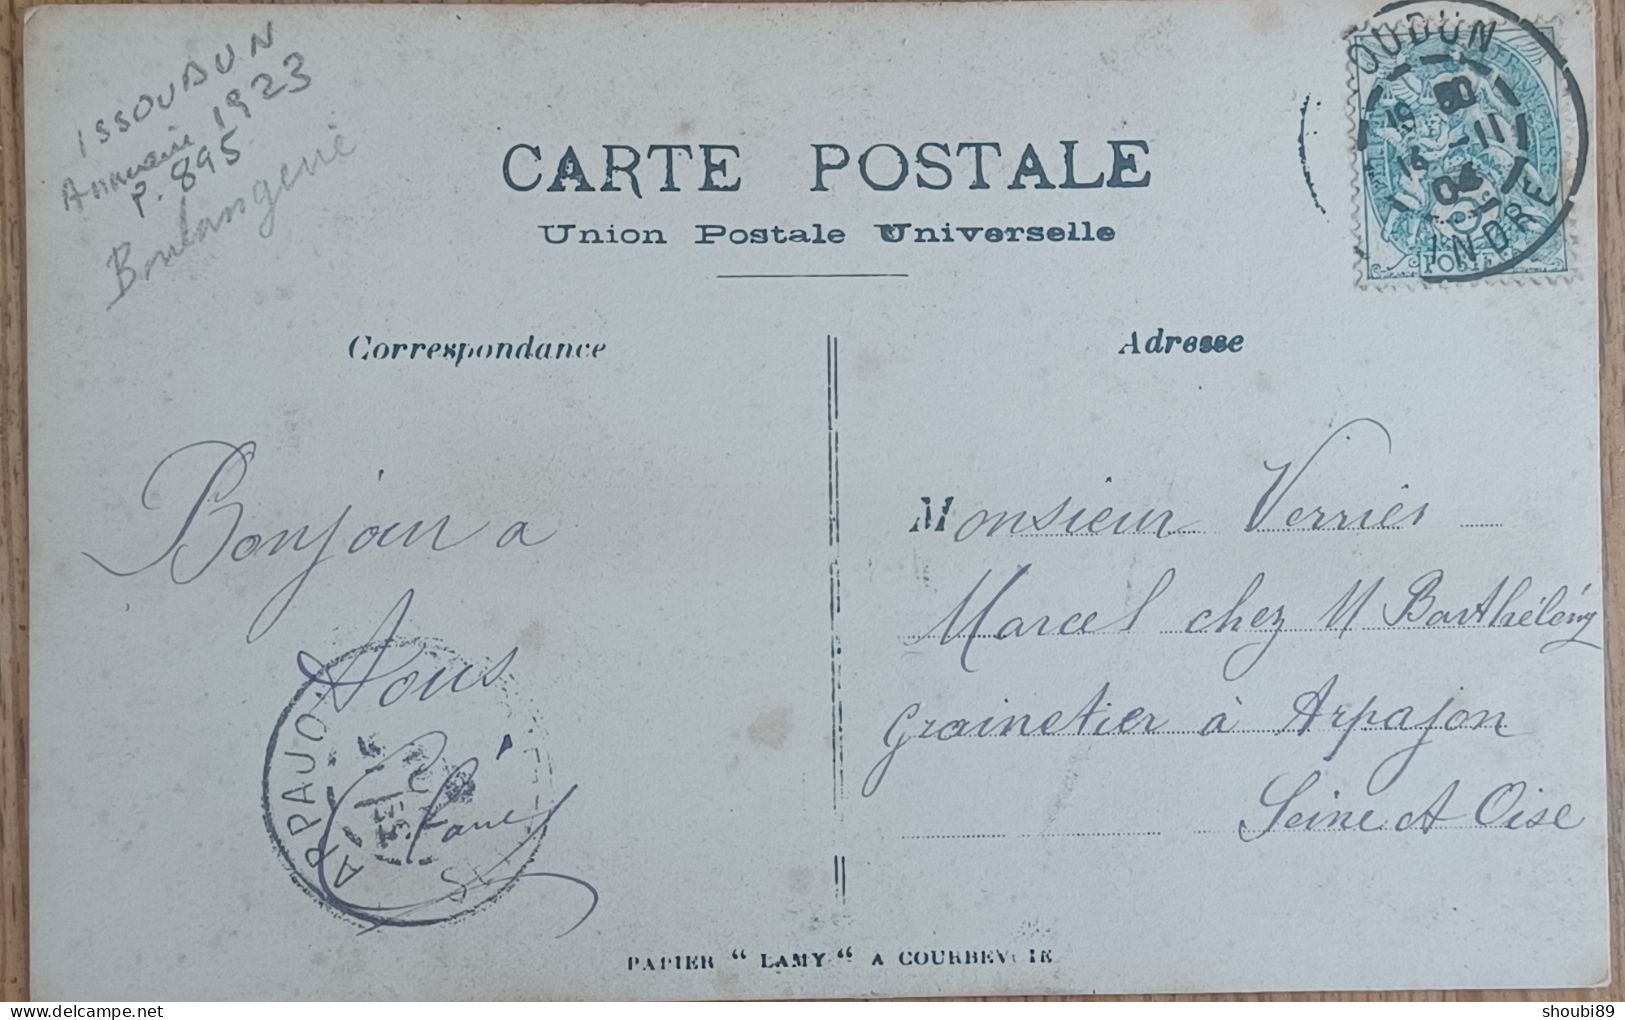 ISSOUDUN
Annuaire 1923
P. 895
Boulangerie
CARTE POSTALE
Union Postale Universelle
OUDUN
19 30
14 -11
04
INDRE
POSTE
Correspondance
Adresse
Bonjour a
tous
ARPAJON
Monsieur Verrier
Marcel chez M Barthélémy
grainetier à Arpajon
Seine et Oise
PAPIER “ LAMY “ A COURBEVOIE
shoubi89